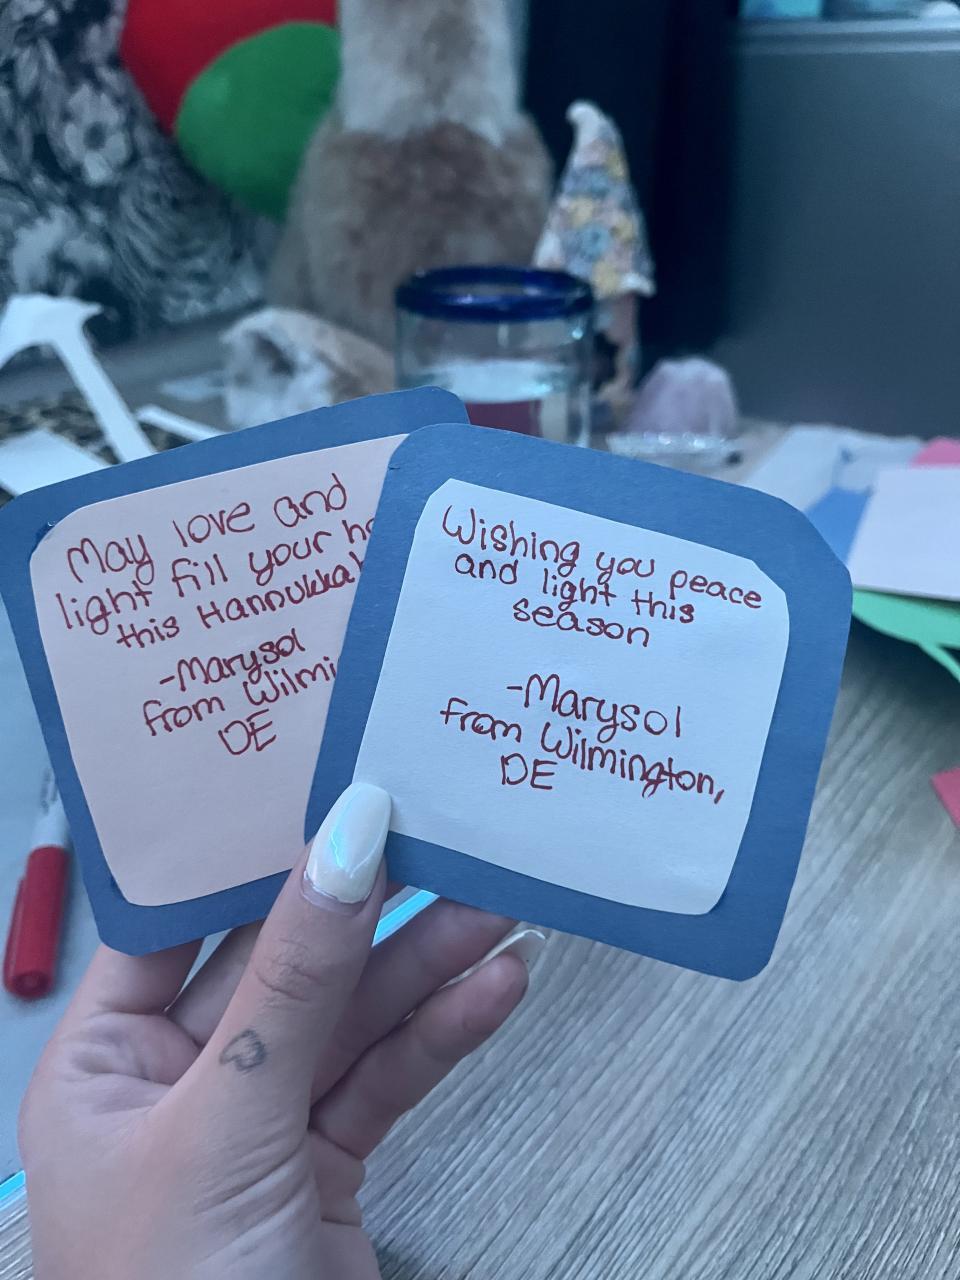 May love and
light fill your
this Hannukka
-Marysol
from Wilmi
DE
Wishing you peace
and light this
season
-Marysol
from Wilmington,
DE